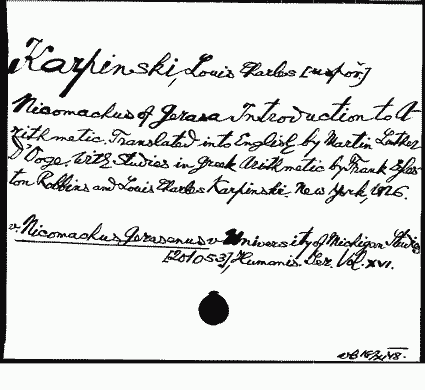 Karpinski, Louis Charles [uspor.]
Nicomachus of Gerasa Introduction to A-
rithmetic. Translated into English by Martin Luther
D'Ooge. With studies in Greek Arithmetic by Frank Egles-
ton Robbins and Louis Charles Karpinski. New York, 1926.
v. Nicomachus Gerasenus v. University of Michigan Studies
[201053], Humanis. Ser. Vol. XVI.